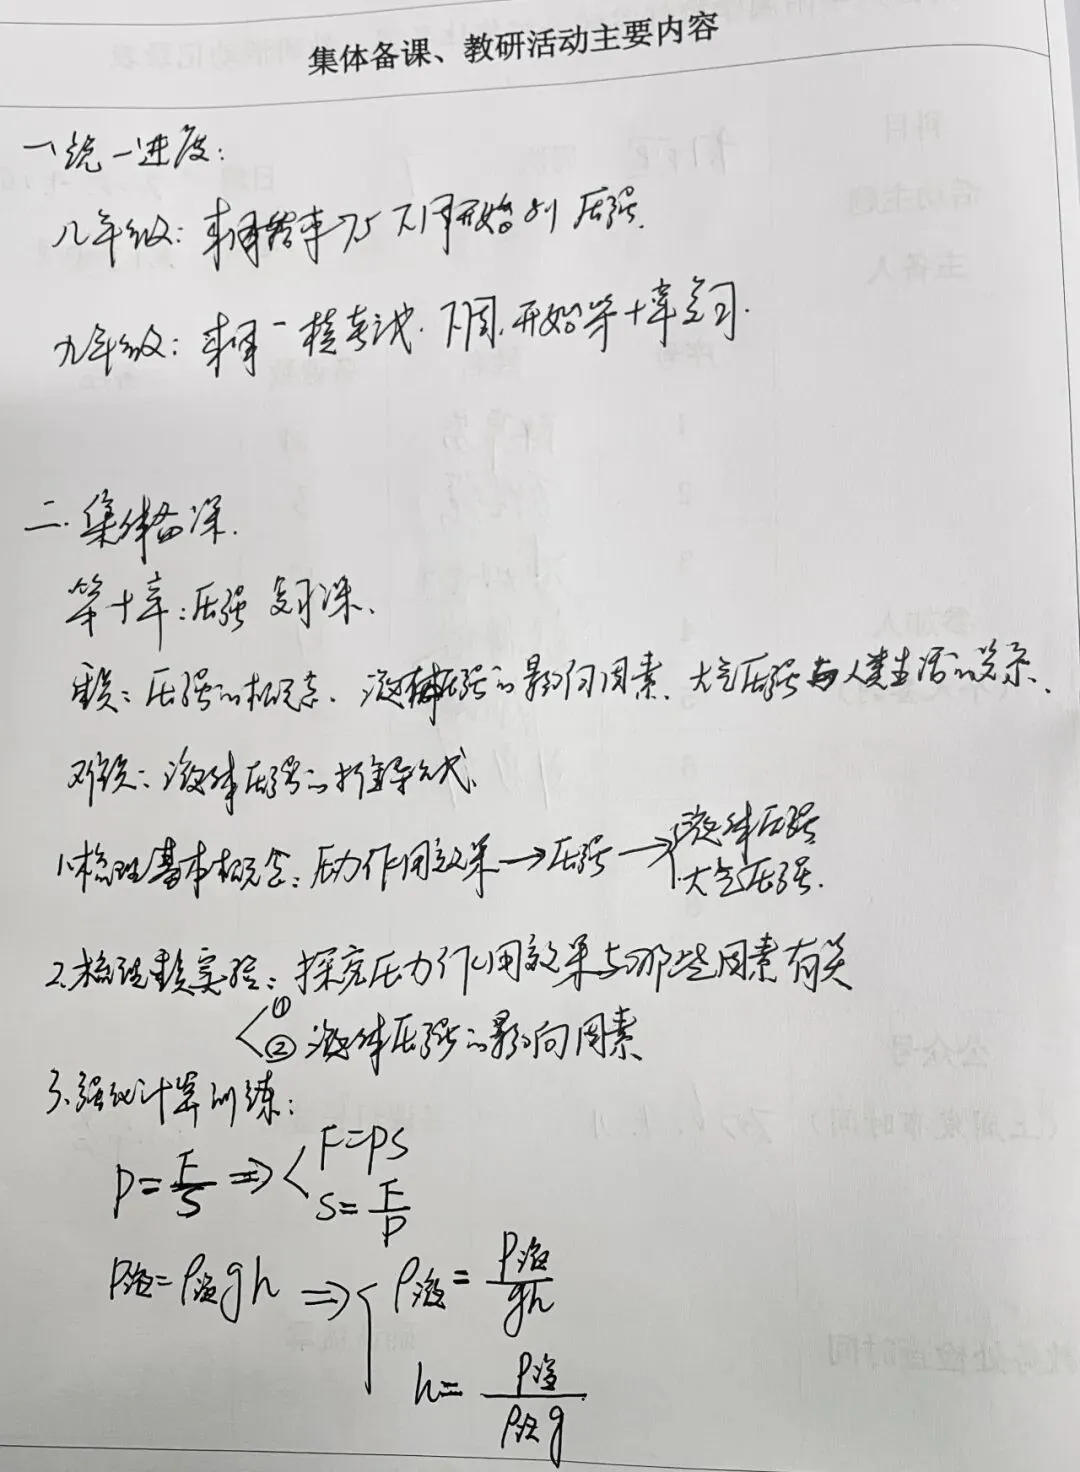 集体备课、教研活动主要内容
一、统一进度：
八年级：本周结束7.5 下周开始8.1 压强.
九年级：本周一模考试.下周.开始第十章复习.
二.集体备课.
第十章：压强 复习课.
重点：压强的概念、液体压强的影响因素、大气压强与人类生活的关系、
难点：液体压强的推导公式.
1.梳理基本概念：压力作用效果→压强→液体压强
大气压强.
2.梳理重点实验：探究压力作用效果与哪些因素有关
①
②液体压强的影响因素
3.强化计算训练：
P=F/S ⇒ F=PS
S=F/P
P液=ρ液gh ⇒ ρ液=P液/gh
h=P液/ρ液g